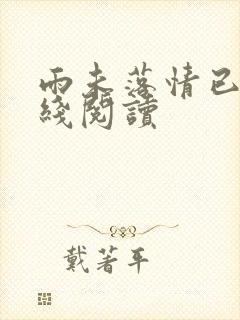 雨未落情已
綫閱讀
戴著平